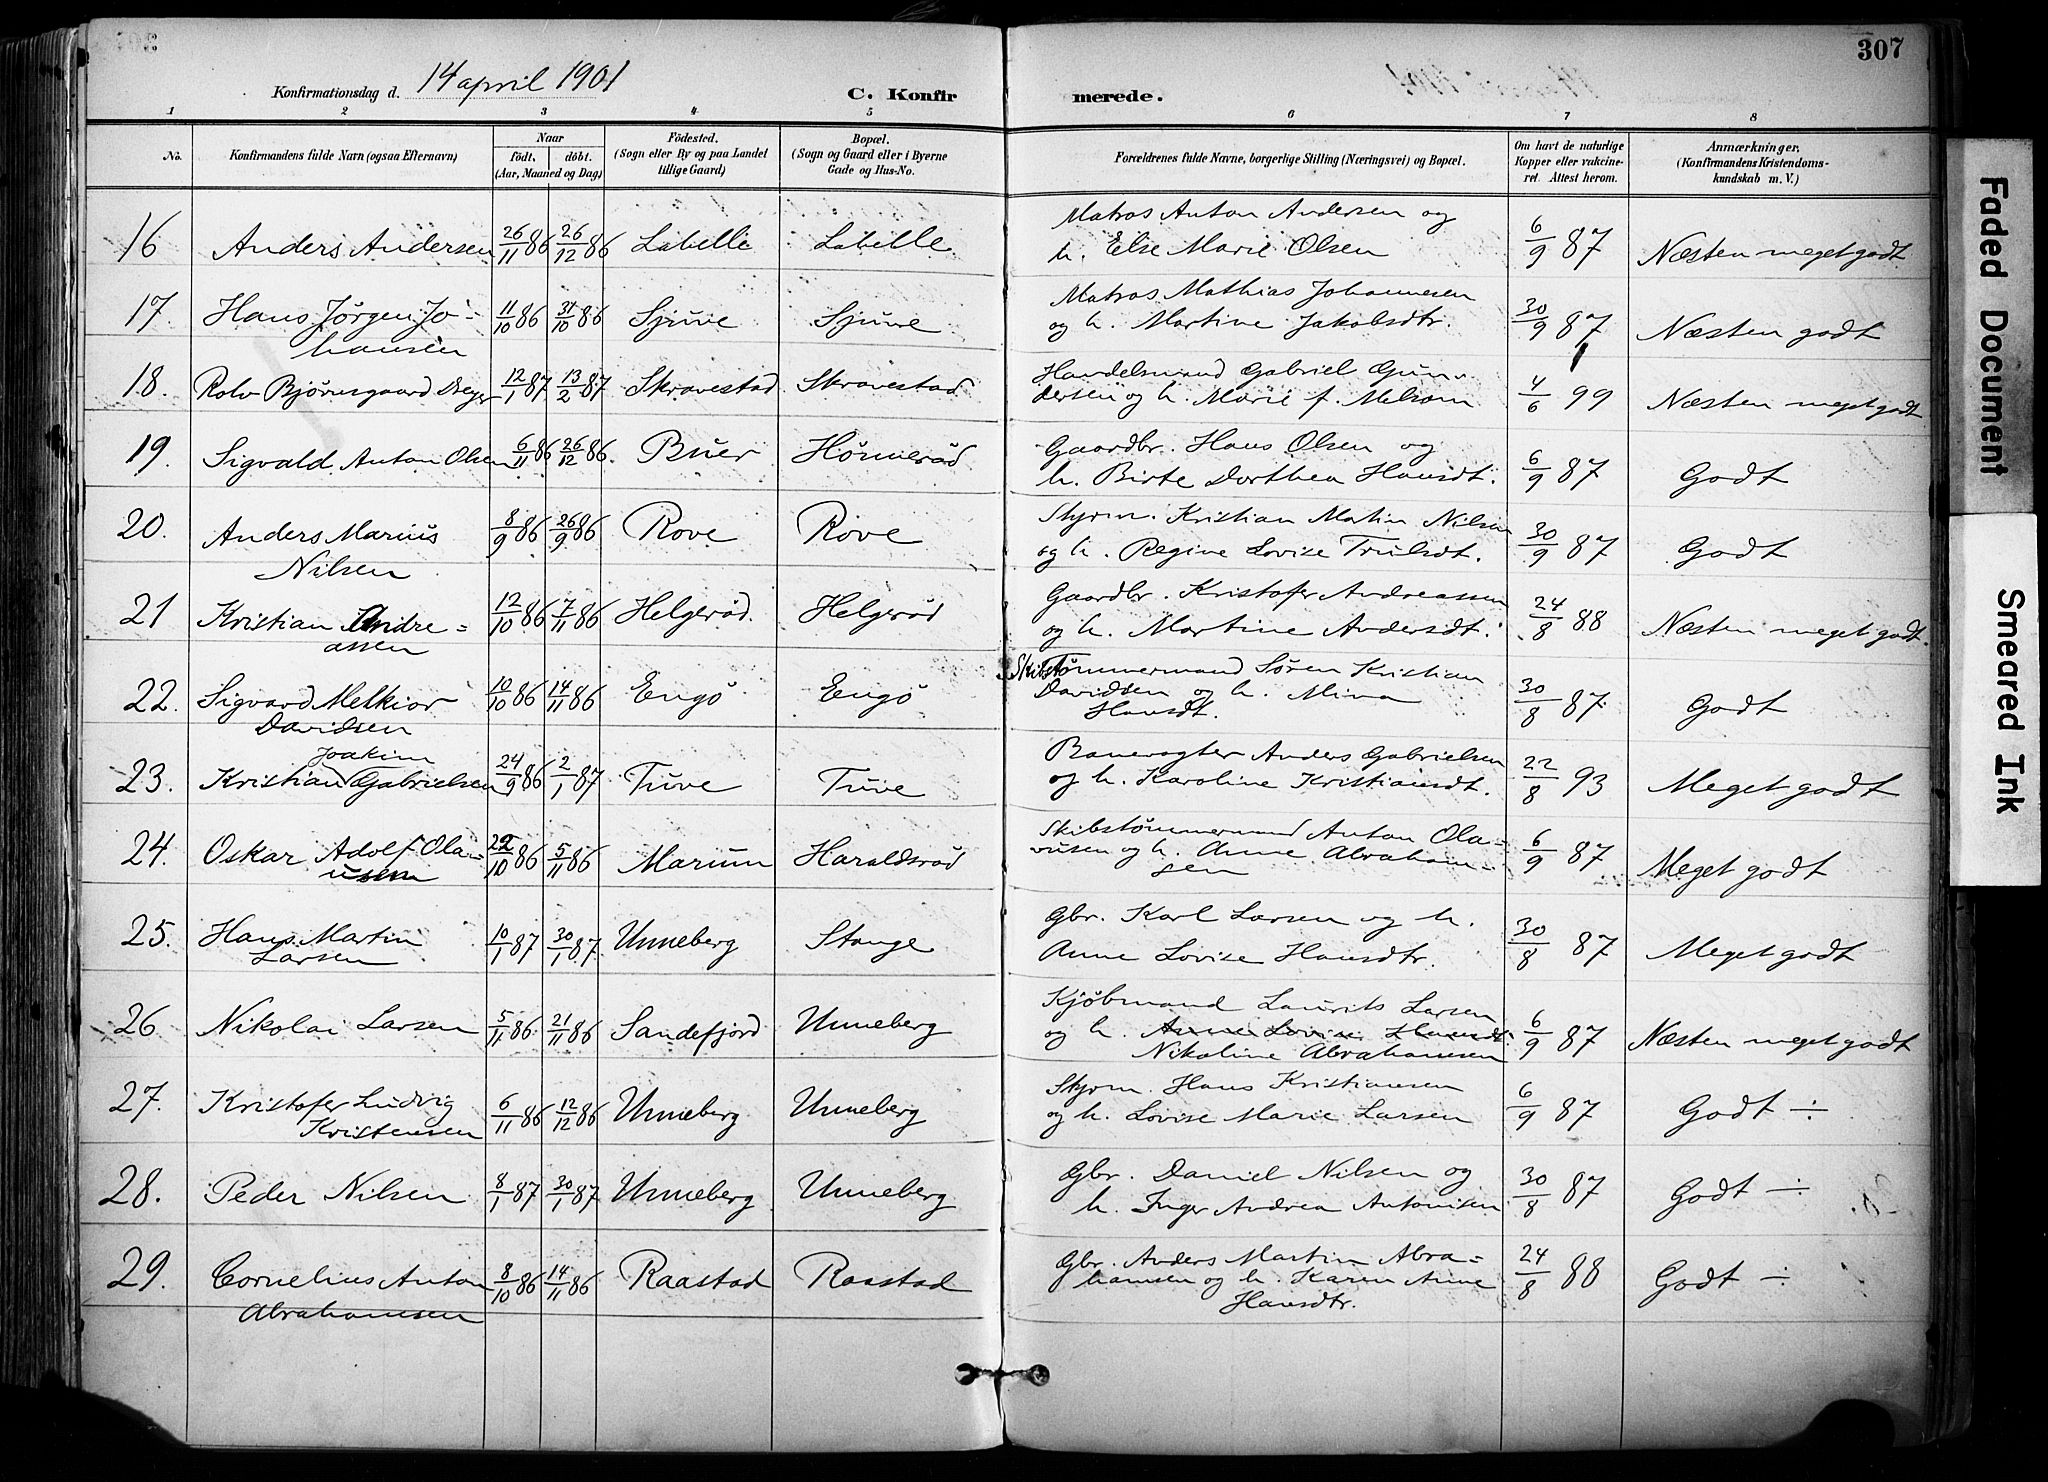 307
Konfirmationsdag d. 14 april 1901
C. Konfirmerede.
1 2 3 4 5 6 7 8
No.
Konfirmandens fulde Navn (ogsaa Efternavn)
Naar
födt, döbt.
(Aar, Maaned og Dag)
Födested.
(Sogn eller By og paa Landet
tillige Gaard)
Bopæl.
(Sogn og Gaard eller i Byerne
Gade og Hus-No.
Forældrenes fulde Navne, borgerlige Stilling (Næringsvei) og Bopæl.
Om havt de naturlige
Kopper eller vakcine-
ret. Attest herom.
Anmærkninger.
(Konfirmandens Kristendoms-
kundskab m. V.)
16 Anders Andersen 26/11 86 26/12 86 Labelle Labelle Matros Anton Andersen og
h. Else Marie Olsen 6/9 87 Næsten meget godt
17. Hans Jørgen Jo-
hansen 11/10 86 31/10 86 Sjuve Sjuve Matros Mathias Johannesen
og h. Martine Jakobsdtr. 30/9 87 Næsten godt
18. Rolv Bjørnsgaard 12/1 87 13/2 87 Skravestad Skravestad Handelsmand Gabriel Gun-
dersen og h. Marie f. Melsom 4/6 99 Næsten meget godt
19. Sigvald Anton Olsen 6/11 86 26/12 86. Buer Hönneröd Gaardbr. Hans Olsen og
h. Birte Dorthea Hansdt. 6/9 87 Godt
20. Anders Marius
Nilsen 8/9 86 26/9 86 Rove Rove Styrm. Kristian Martin Nilsen
og h. Regine Lovise Trulsdt. 30/9 87 Godt
21 Kristian Andre-
assen 12/10 86 7/11 86 Helgeröd. Helgeröd Gaardbr. Kristofer Andreassen
og h. Martine Andersdt. 24/8 88 Næsten meget godt
22. Sigvard Melkior
Davidsen 10/10 86 14/11 86 Engö Engö Skibstömmermand Sören Kristian
Davidsen og h. Mina
Hansdt. 30/8 87. Godt
Joakim
23. Kristian Gabrielsen 24/9 86 2/1 87 Tuve Tuve Banevogter Anders Gabrielsen
og h. Karoline Kristiansdt. 22/8 93 Meget godt
24. Oskar Adolf Ola-
usen 22/10 86 5/11 86 Marum Haraldsröd Skibstömmermand Anton Ola-
vusen og h. Anne Abraham-
sen 6/9 87 Meget godt
25. Hans Martin
Larsen 10/1 87 30/1 87. Unneberg Stange Gbr. Karl Larsen og h.
Anne Lovise Hansdtr. 30/8 87 Meget godt
26 Nikolai Larsen 5/11 86 21/11 86 Sandefjord Unneberg Kjöbmand Laurits Larsen
og h. Anne Lovise Hansdt.
Nikoline Abrahamsen 6/9 87 Næsten meget godt
27. Kristofer Ludvig
Kristensen 6/11 86 12/12 86 Unneberg Unneberg Styrm. Hans Kristiansen
og h. Lovise Marie Larsen 6/9 87 Godt ÷
28. Peder Nilsen 8/1 87 30/1 87 Unneberg Unneberg Gbr. Daniel Nilsen og
h. Inger Andrea Antonisen 30/8 87 Godt ÷
29. Cornelius Anton
Abrahamsen 8/10 86 14/11 86 Raastad Raastad Gbr. Anders Martin Abra-
hamsen og h. Karen Anne
Hansdtr. 24/8 88 Godt ÷
Faded Document
Smeared Ink